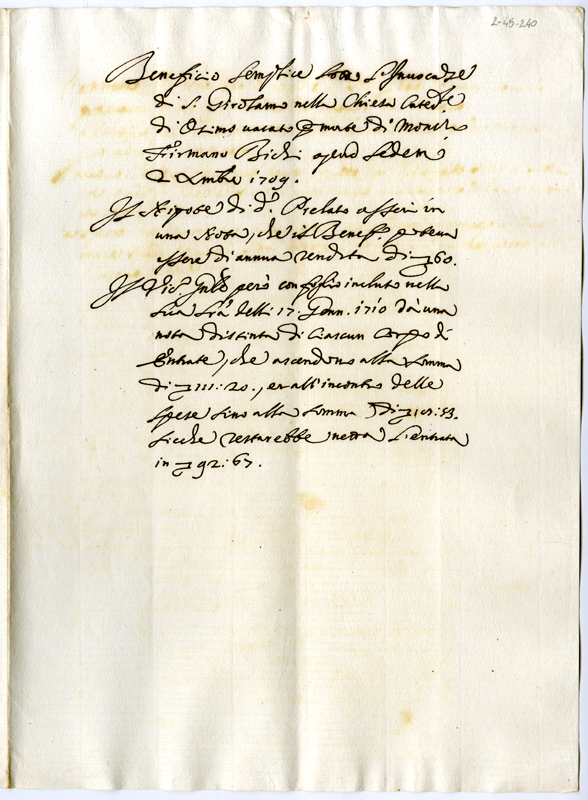 2-45-240
Beneficio Semplice sotto l'Invocaz.e
di S. Girolamo nella Chiesa Cated.le
di Osimo vacato p morte di Mons.r
Firmano Bichi apud Sedem
2 Xmbre 1709.
Il Nipote di d.o Prelato asserì in
una Nota, che il Benef.o poteva
essere di annua rendita di 60.
Il Vic.o Gnle però con foglio incluso nella
sua Lra delli 17. Genn. 1710 dà una
nota distinta di Ciascun Corpo di
Entrate, che ascendono alla somma
di 111: 20., et all'incontro delle
spese sino alla somma di : 53.
sicche restarebbe netta l'entrata
in 92: 67.